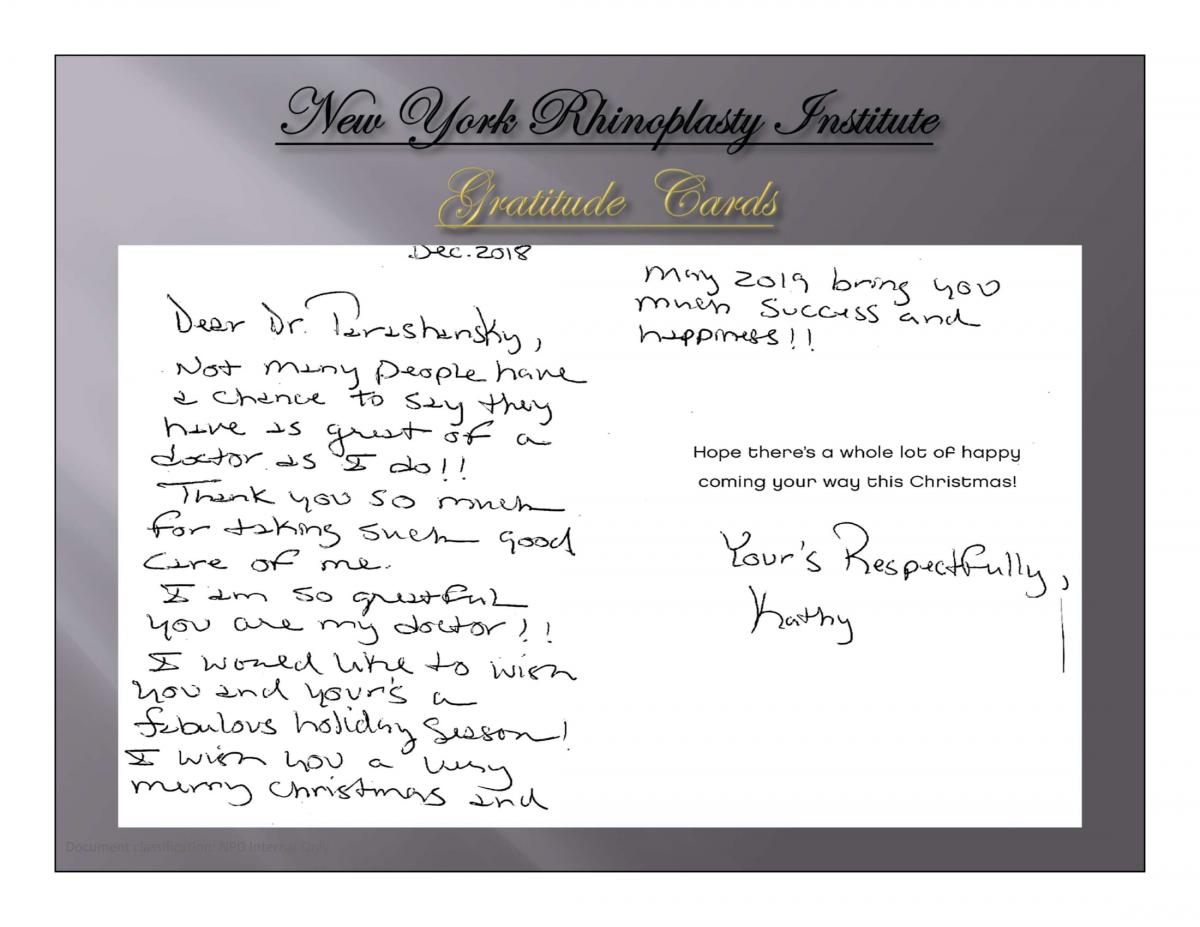 New York Rhinoplasty Institute
Gratitude Cards
Dec. 2018
Dear Dr. Parashansky,
Not many people have
a chance to say they
have as great of a
doctor as I do!!
Thank you so much
for taking such good
care of me.
I am so grateful
you are my doctor!!
I would like to wish
you and your's a
fabulous holiday season!
I wish you a very
merry Christmas and
may 2019 bring you
much success and
happiness!!
Hope there's a whole lot of happy
coming your way this Christmas!
Your's Respectfully,
Kathy
Document classification: NPD Internal Only